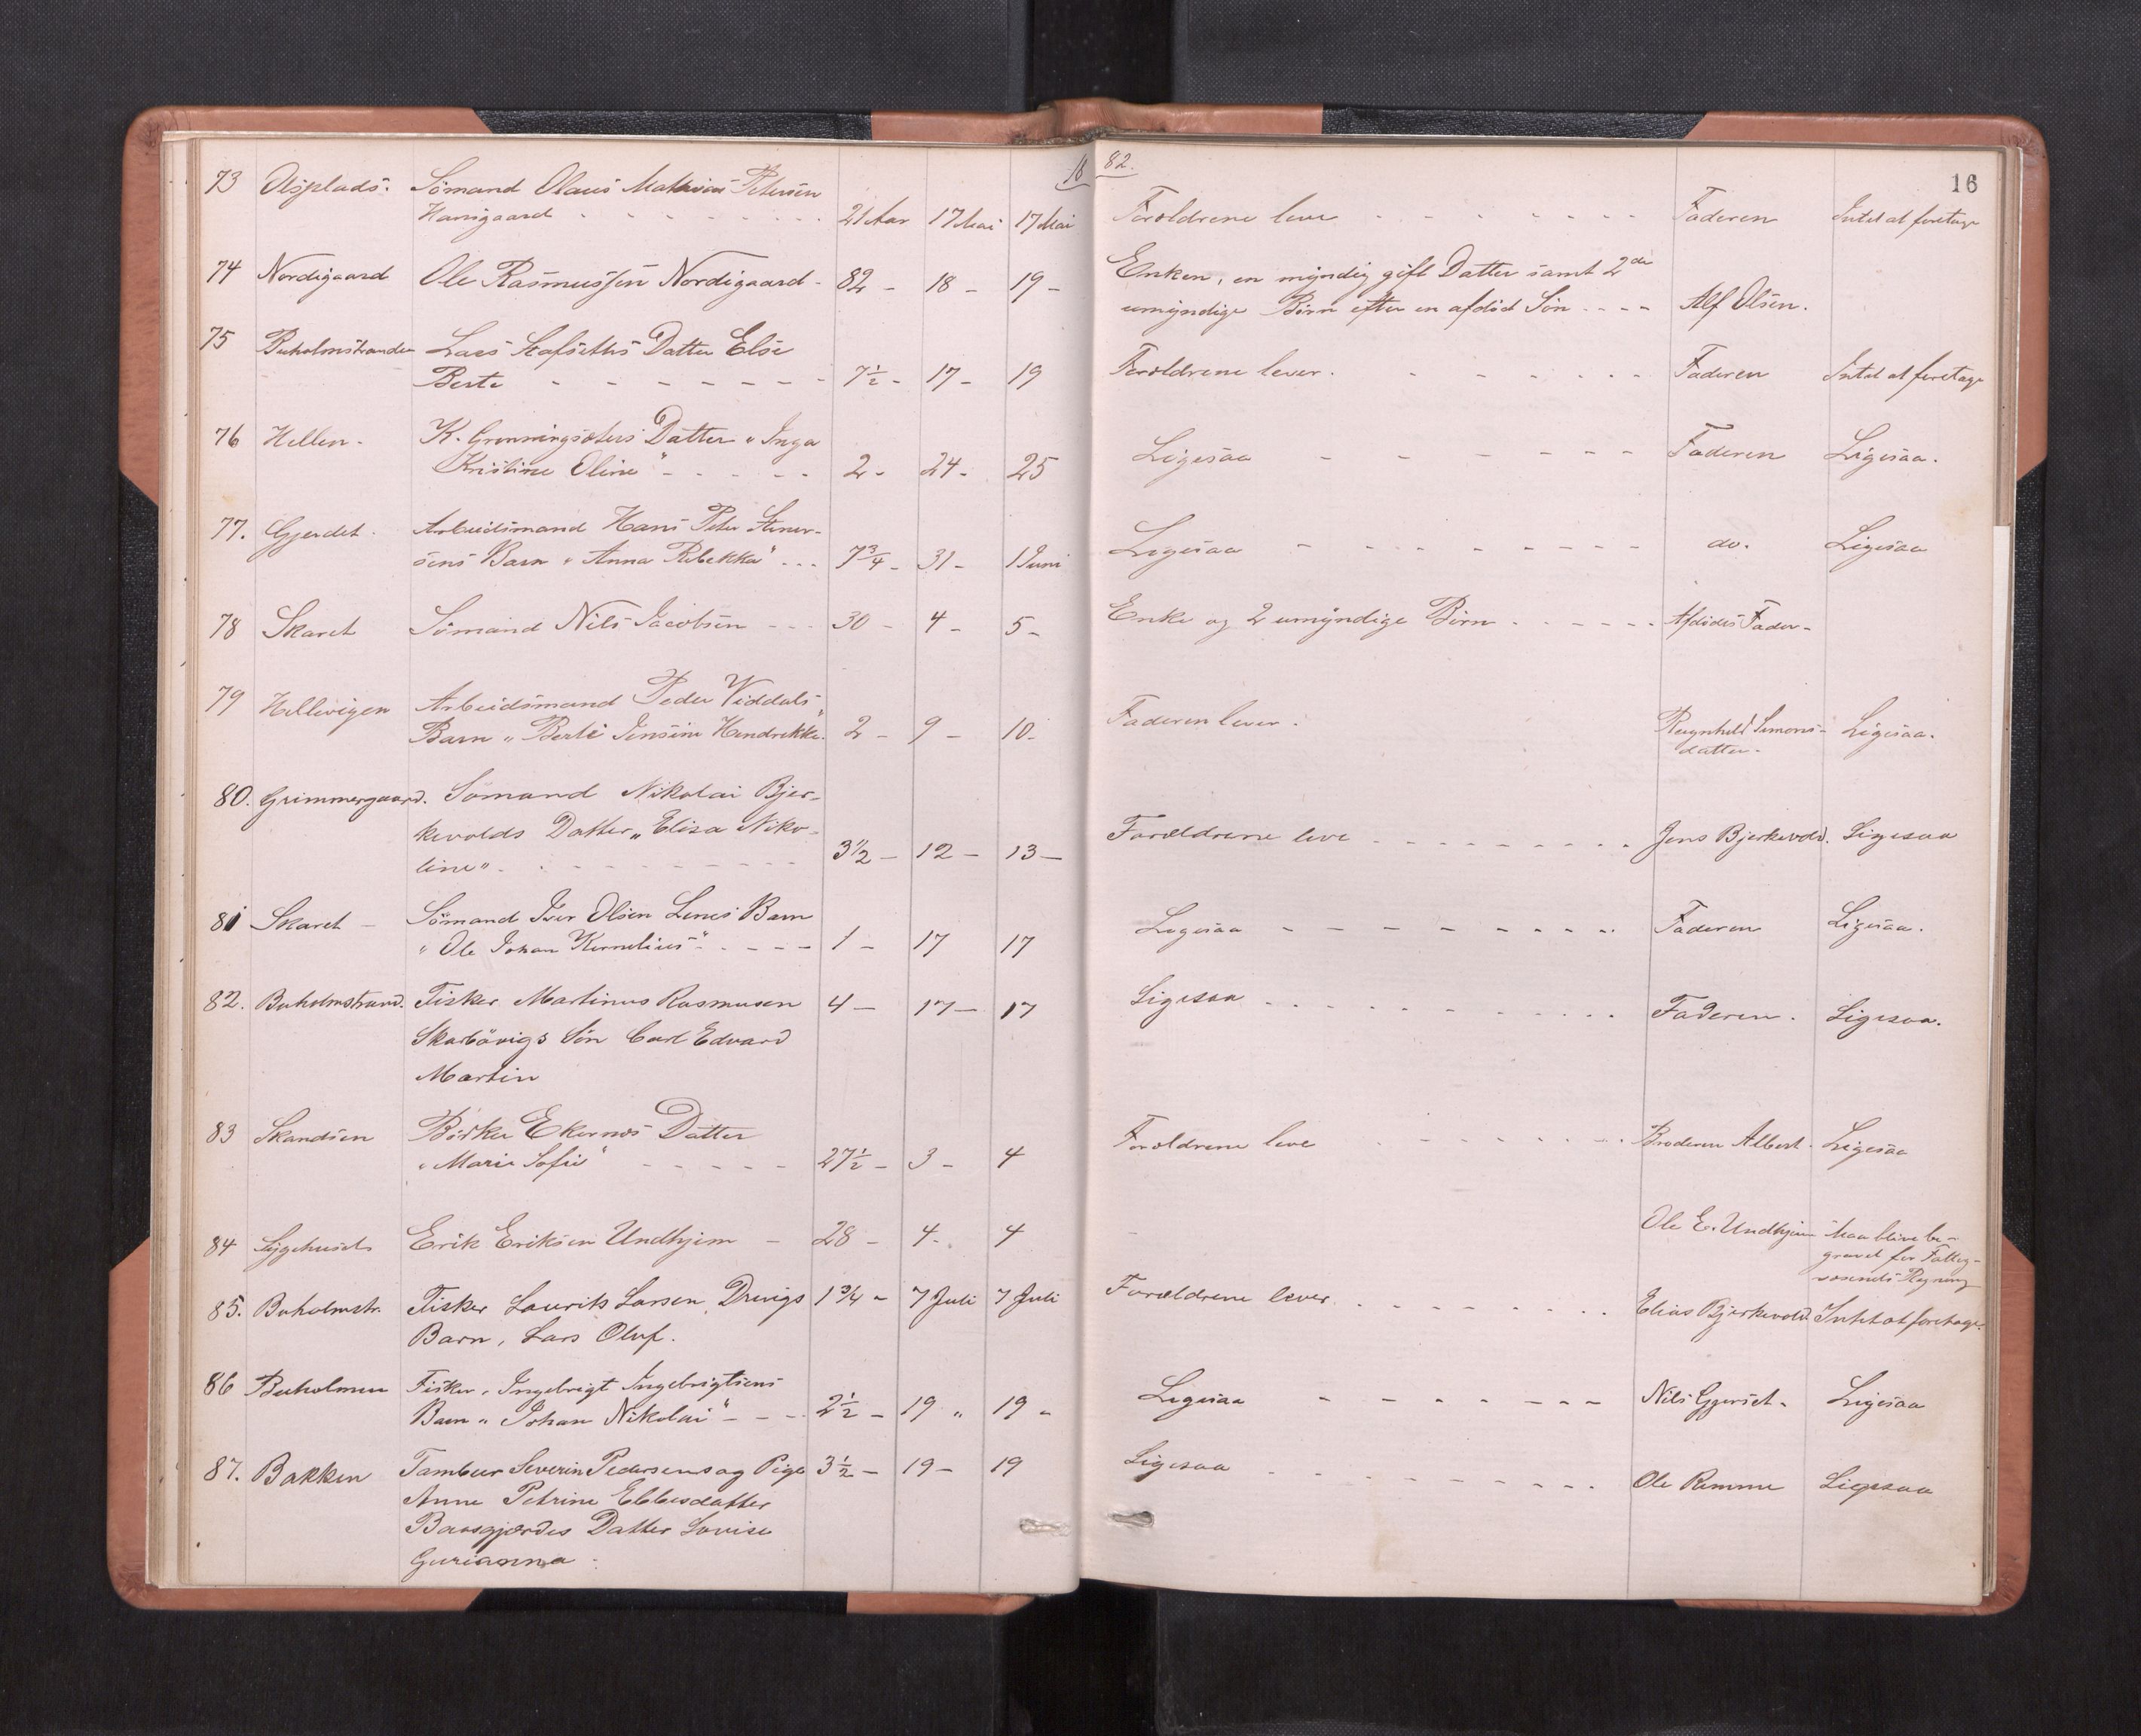 18 82.
16
73 Olsplads. Sömand Olaus Mathias Petersen
Hansgaard - - - 21 Aar 17 Mai 17 Mai Forældrene leve - - - Faderen Intet at foretage
74 Nordigaard Ole Rasmussen Nordigaard - 82 - 18 - 19 - Enken, en myndig gift Datter samt 2de
umyndige Börn efter en afdöd Sön - - - Alf Olsen.
75 Buholmstranden Lars Stafseths Datter Else
Berte - - - 7½ - 17 - 19 Forældrene lever. - - - Faderen Intet at foretage
76 Hellen - K. Grønningsæters Datter „Inga
Kristine Oline" - - - 2 - 24 - 25 Ligesaa - - - Faderen Ligesaa.
77. Gjerdet. Arbeidsmand Hans Peter Stener-
sens Barn „Anna Rebekka" - - - 7¾ - 31 - 1 Juni Ligesaa - - - do. Ligesaa
78 Skaret Sömand Nils Jacobsen - - - 30 - 4 - 5 - Enke og 2 umyndige Börn - - - Afdødes Fader -
79 Hellevigen Arbeidsmand Peder Viddals
Barn „Berte Jensine Hendrikke" 2 - 9 - 10 - Faderen lever. Ragnhild Simons-
datter - Ligesaa.
80. Grimmergaard. Sömand Nikolai Bjer-
kevolds Datter „Elisa Niko-
line" - - - 3½ - 12 - 13 - Forældrene leve - - - Jens Bjerkevold. Ligesaa
81 Skaret - Sömand Iver Olsen Lenes Barn
„Ole Johan Kornelius" - - - 1 - 17 17 Ligesaa - - - Faderen Ligesaa.
82. Buholmstrand. Fisker Martinus Rasmusen 4 - 17 - 17 Ligesaa - - - Faderen. Ligesaa.
Skarbövigs Sön Carl Edvard
Martin
83 Skandsen Bödker Ekernæs Datter
„Marie Sofie" - - - 27½ - 3 - 4 Forældrene leve - - - Broderen Albert. Ligesaa
84 Sygehuset Erik Eriksen Undhjem - 28 - 4 - 4 - Ole E. Undhjem Maa blive be-
gravet for Fattig-
væsenets Regning
85. Buholmstr. Fisker Laurits Larsen Drivigs 1¾ - 7 Juli 7 Juli Forældrene lever - - - Elias Bjerkevold. Intet at foretage.
Barn, Lars Oluf.
86 Buholmen Fisker, Ingebrigt Ingebrigtsens
Barn „Johan Nikolai" - - - 2½ - 19 „ 19 - Ligesaa - - - Nils Gjerset. Ligesaa
87. Bakken Tambur Severin Pedersens og Pige 3½ - 19 - 19 Ligesaa - - - Ole Remme Ligesaa
Anne Petrine Ebbesdatter
Baasgjerdes Datter Lovise
Gurianna -